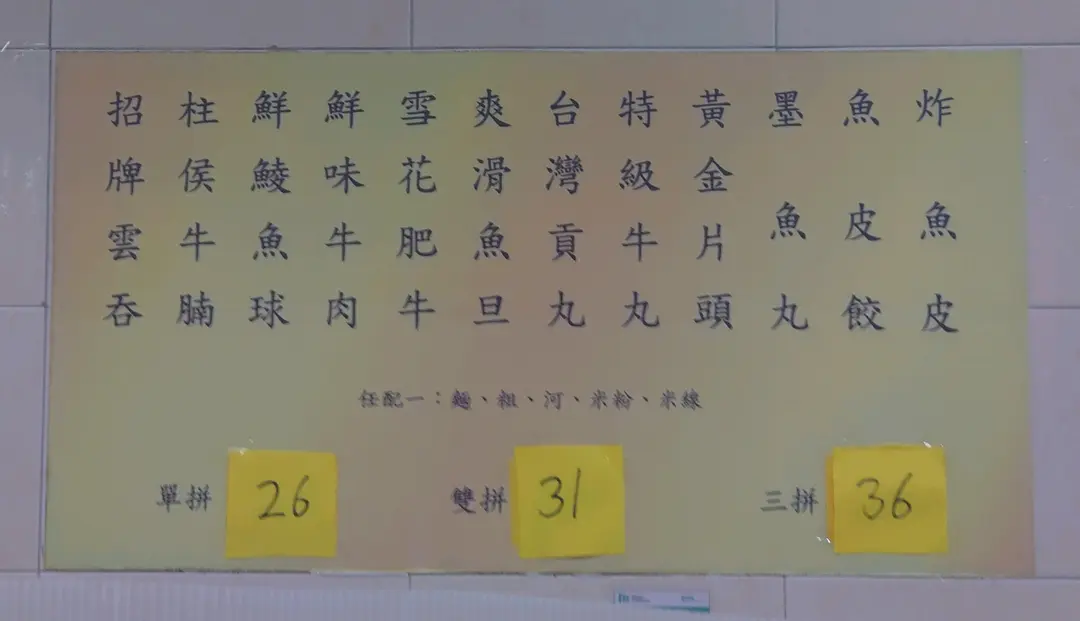 招牌雲吞
柱侯牛腩
鮮鯪魚球
鮮味牛肉
雪花肥牛
爽滑魚旦
台灣貢丸
特級牛丸
黃金片頭
墨魚丸
魚皮餃
炸魚皮
任配一：麵、粗、河、米粉、米線
單拼 26 雙拼 31 三拼 36